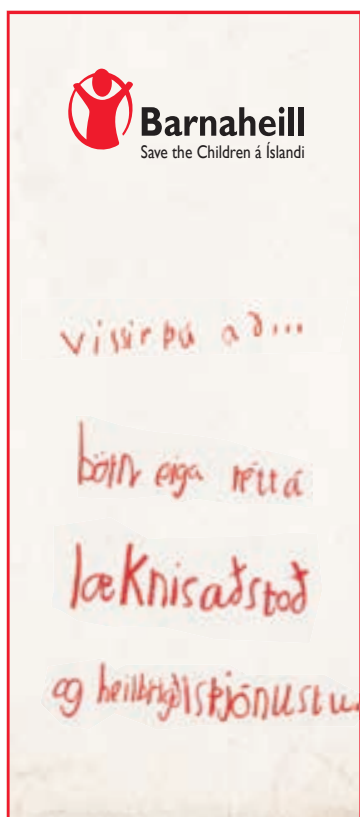 Barnaheill
Save the Children á Íslandi
vissir þú að...
börn eiga rétt á
læknisaðstoð
og heilbrigðisþjónustu.